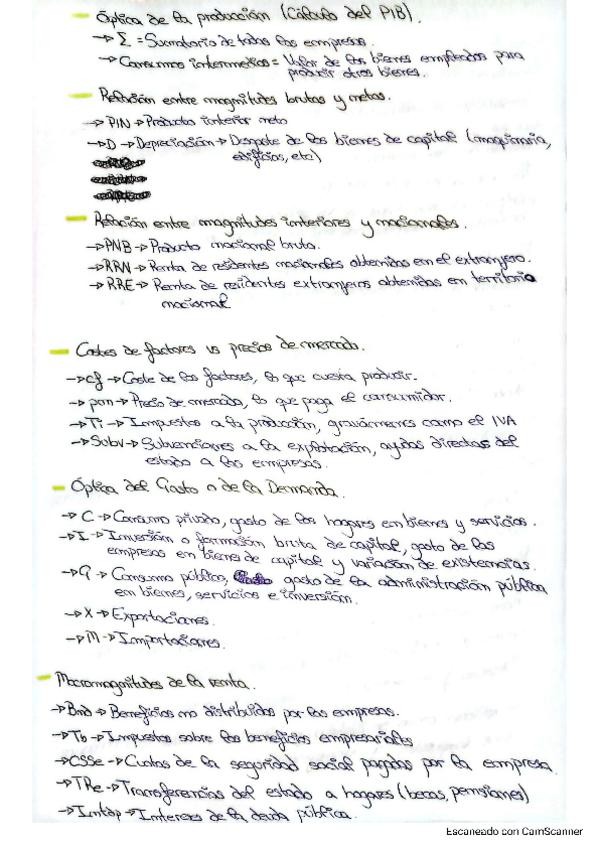 - Óptica de la producción (Cálculo del PIB).
→ Σ = Sumatorio de todas las empresas.
→ Consumos intermedios = Valor de los bienes empleados para
producir otros bienes.
- Relación entre magnitudes brutas y netas.
→ PIN → Producto interior neto
→ D → Depreciación → Desgaste de los bienes de capital (maquinaria,
edificios, etc)
- Relación entre magnitudes interiores y nacionales.
→ PNB → Producto nacional bruto.
→ RRN → Renta de residentes nacionales obtenidas en el extranjero.
→ RRE → Renta de residentes extranjeros obtenidas en territorio
nacional
- Costes de factores vs precios de mercado.
→ cf → Coste de los factores, lo que cuesta producir.
→ pm → Precio de mercado, lo que paga el consumidor.
→ Ti → Impuestos a la producción, gravámenes como el IVA
→ Subv → Subvenciones a la explotación, ayudas directas del
estado a las empresas.
- Óptica del Gasto o de la Demanda.
→ C → Consumo privado, gasto de los hogares en bienes y servicios.
→ I → Inversión o formación bruta de capital, gasto de las
empresas en bienes de capital y variación de existencias.
→ G → Consumo público, gasto de la administración pública
en bienes, servicios e inversión.
→ X → Exportaciones.
→ M → Importaciones.
- Macromagnitudes de la renta.
→ Bnd → Beneficios no distribuidos por las empresas.
→ Tb → Impuestos sobre los beneficios empresariales
→ CSSe → Cuotas de la seguridad social pagadas por la empresa.
→ TRe → Transferencias del estado a hogares (becas, pensiones)
→ Intdp → Intereses de la deuda pública.
Escaneado con CamScanner